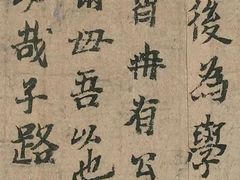 後為學
冉有公
毋吾以也
哉子路